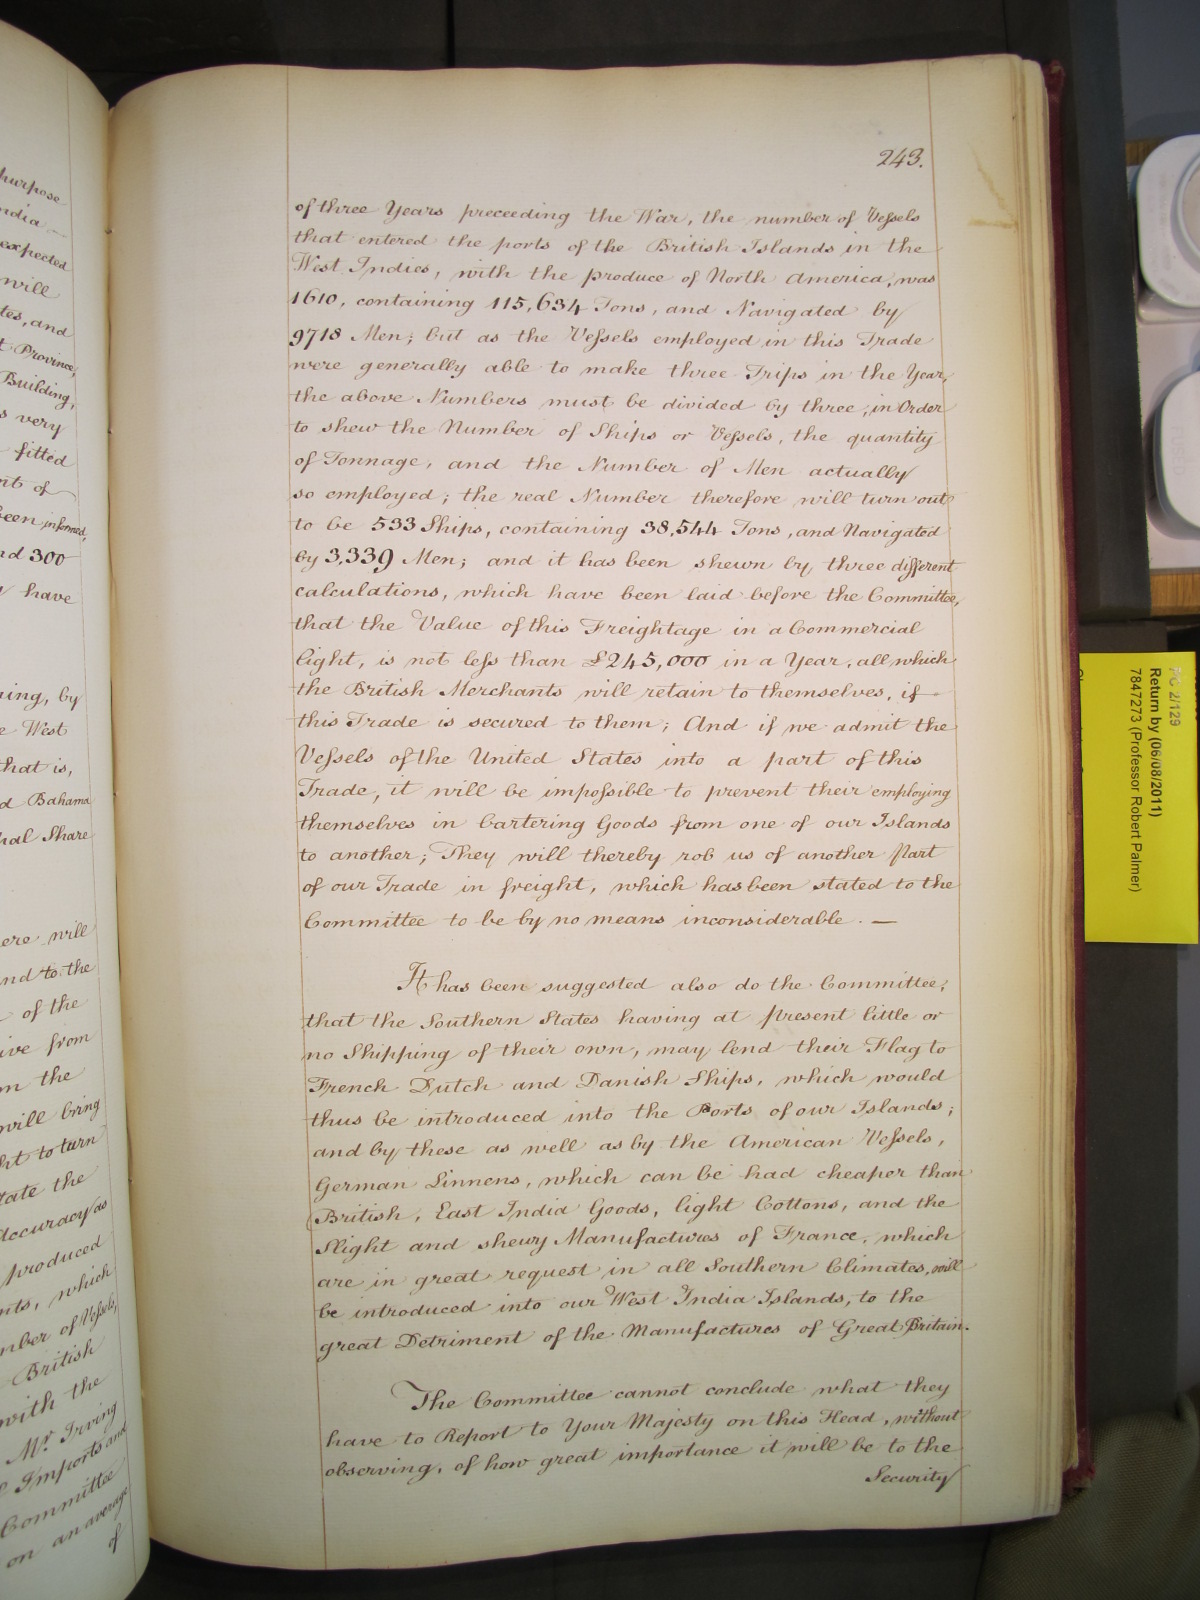 243.
of three Years preceeding the War, the number of Vessels
that entered the ports of the British Islands in the
West Indies, with the produce of North America, was
1610, containing 115,634 Tons, and Navigated by
9718 Men; but as the Vessels employed in this Trade
were generally able to make three Trips in the Year,
the above Numbers must be divided by three, in Order
to shew the Number of Ships or Vessels, the quantity
of Tonnage, and the Number of Men actually
so employed; the real Number therefore will turn out
to be 533 Ships, containing 38,544 Tons, and Navigated
by 3,339 Men; and it has been shewn by three different
calculations, which have been laid before the Committee,
that the Value of this Freightage in a Commercial
light, is not less than £245,000 in a Year, all which
the British Merchants will retain to themselves, if
this Trade is secured to them; And if we admit the
Vessels of the United States into a part of this
Trade, it will be impossible to prevent their employing
themselves in bartering Goods from one of our Islands
to another; They will thereby rob us of another Part
of our Trade in freight, which has been stated to the
Committee to be by no means inconsiderable. —
It has been suggested also do the Committee,
that the Southern States having at present little or
no Shipping of their own, may lend their Flag to
French Dutch and Danish Ships, which would
thus be introduced into the Ports of our Islands;
and by these as well as by the American Vessels,
German Linnens, which can be had cheaper than
British, East India Goods, light Cottons, and the
Slight and shewy Manufactures of France, which
are in great request in all Southern Climates, will
be introduced into our West India Islands, to the
great Detriment of the Manufactures of Great Britain.
The Committee cannot conclude what they
have to Report to Your Majesty on this Head, without
observing, of how great importance it will be to the
Security
purpose
ndia
expected
will
tes, and
t Province,
Building,
s very
fitted
nt of
been informed,
nd 300
have
ning, by
e West
that is,
d Bahama
nal Share
ere will
nd to the
of the
ive from
on the
will bring
ht to turn
tate the
Accuracy as
produced
nts, which
mber of Vessels,
British
with the
Mr. Irving
Imports and
Committee
on an average
of
PC 2/129
Return by (06/08/2011)
7847273 (Professor Robert Palmer)